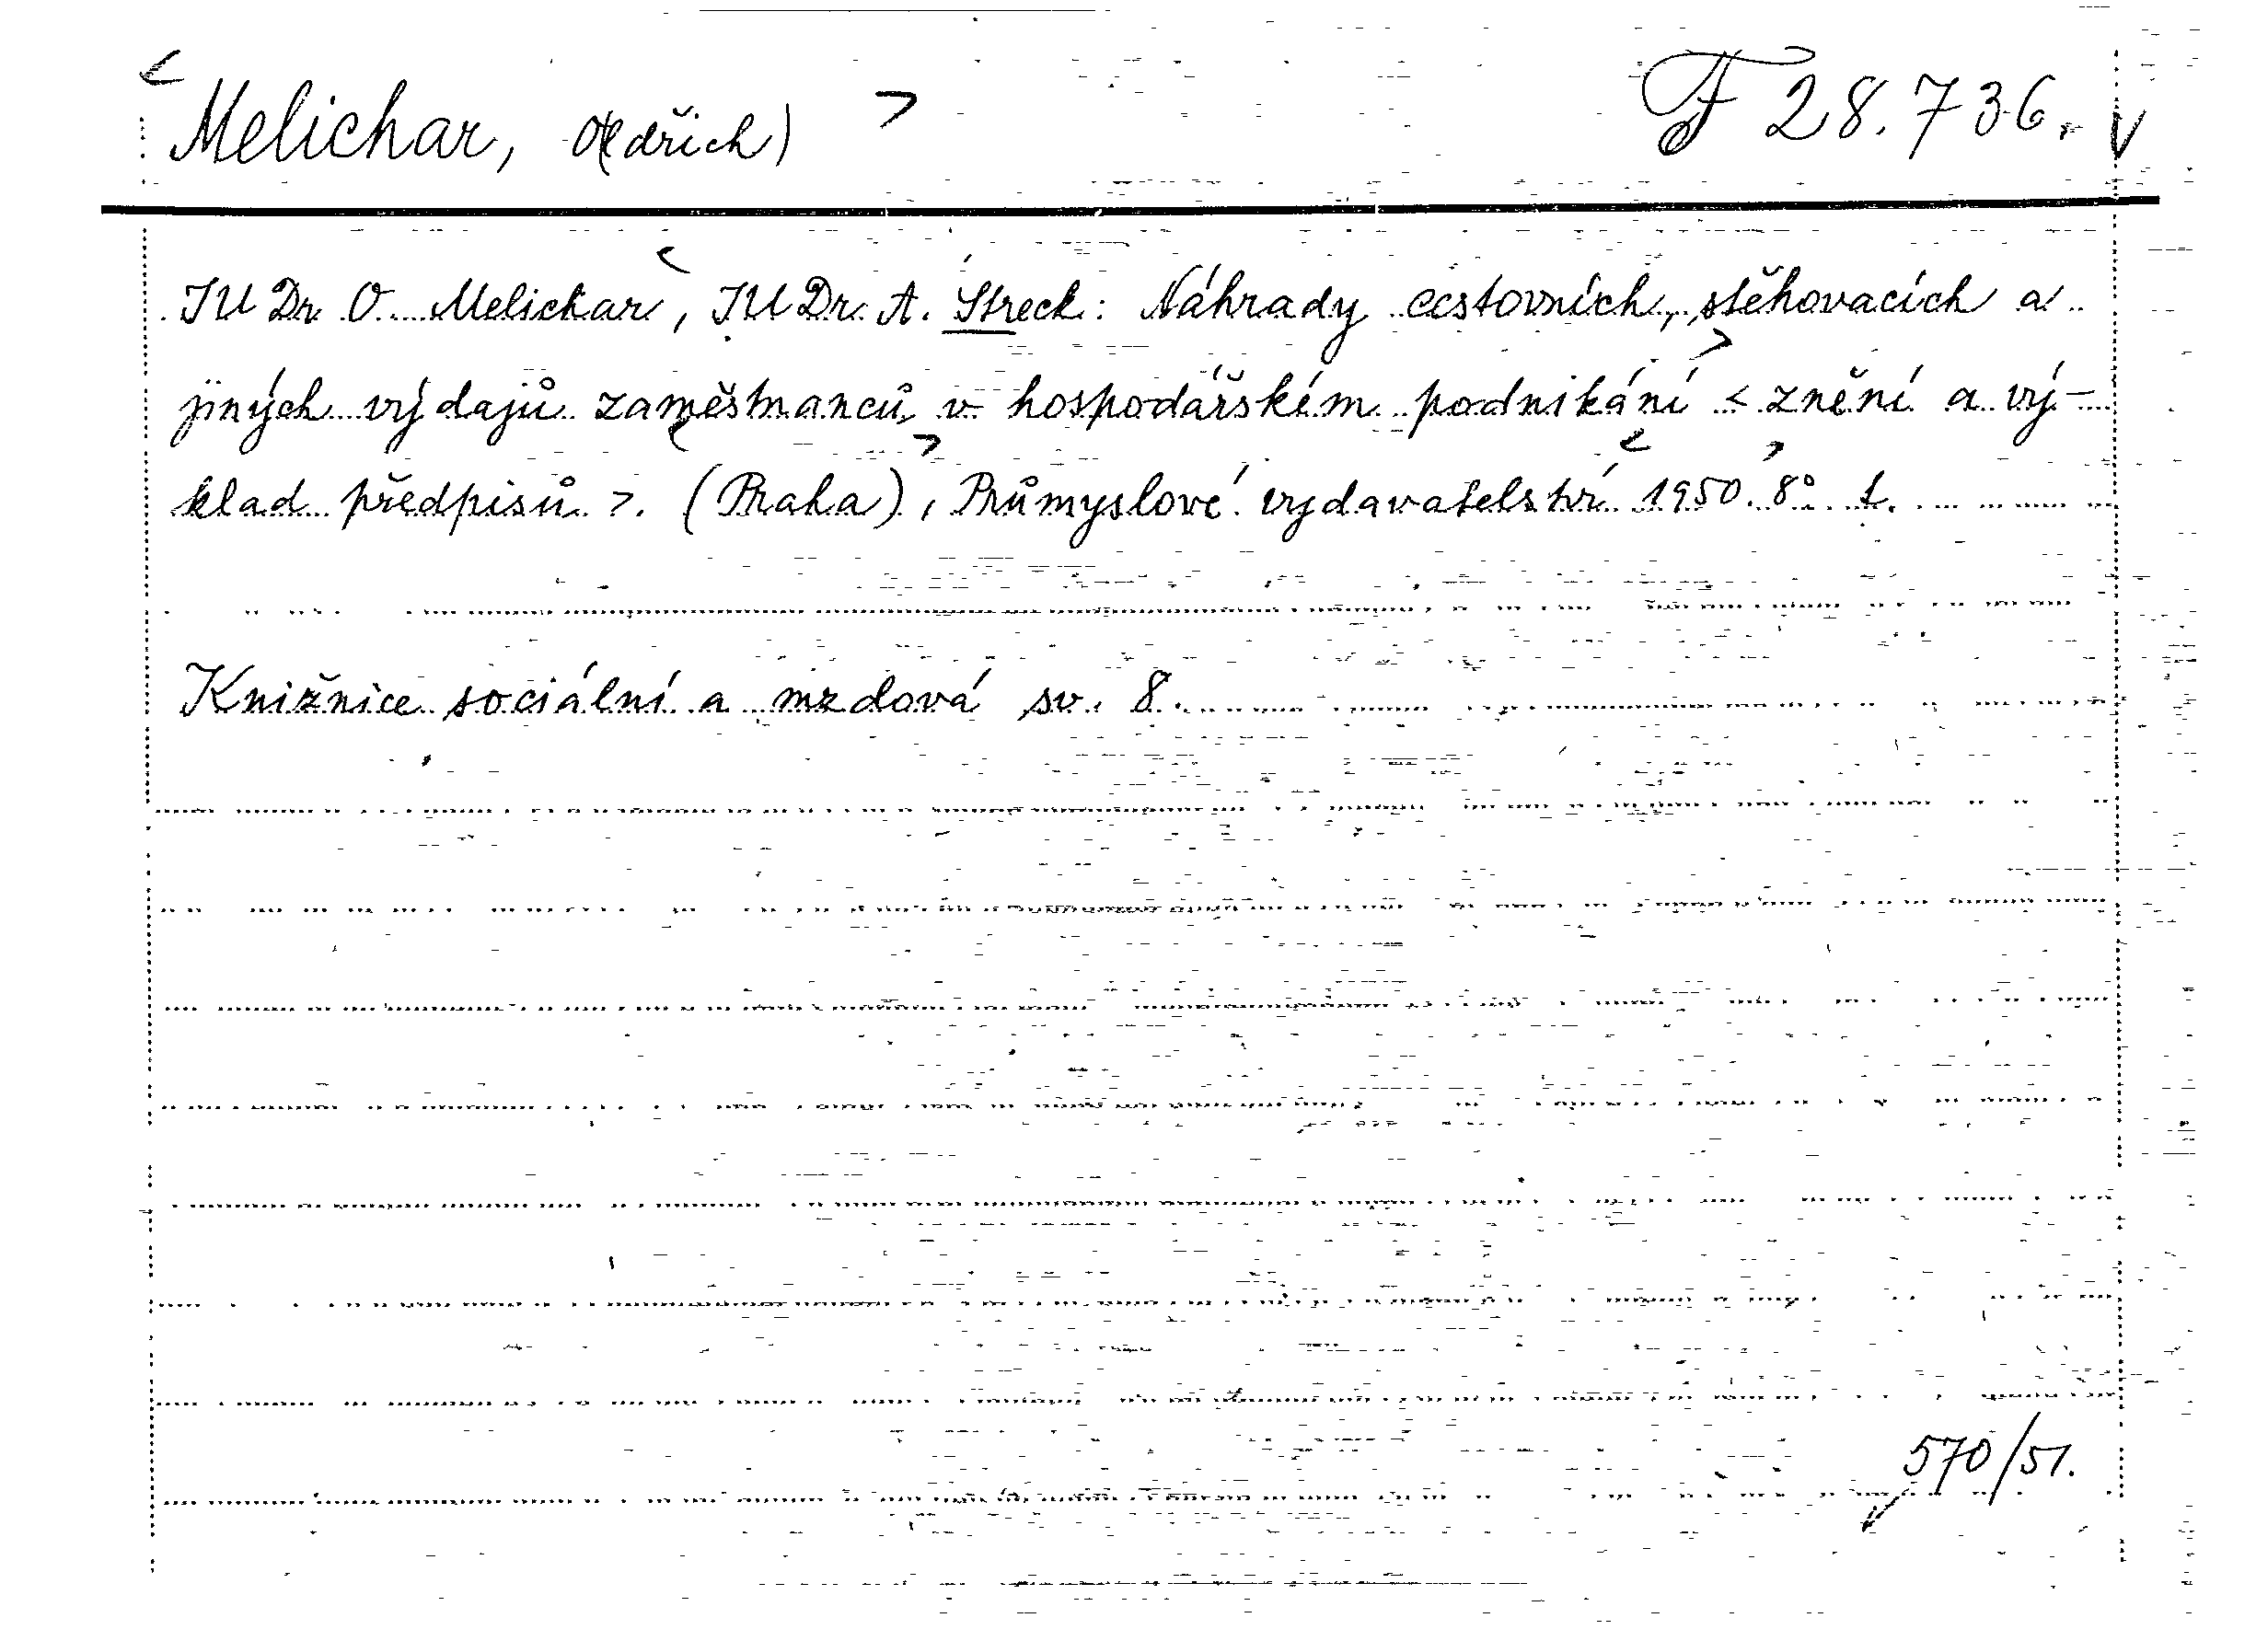 Melichar, O(ldřich) F 28.736.
JUDr. O. Melichar, JUDr. A. Streck: Náhrady cestovních, stěhovacích a
jiných výdajů zaměstnanců v hospodářském podnikání < znění a vý-
klad předpisů >. (Praha), Průmyslové vydavatelství 1950. 8°. 1.
Knižnice sociální a mzdová sv. 8.
570/51.